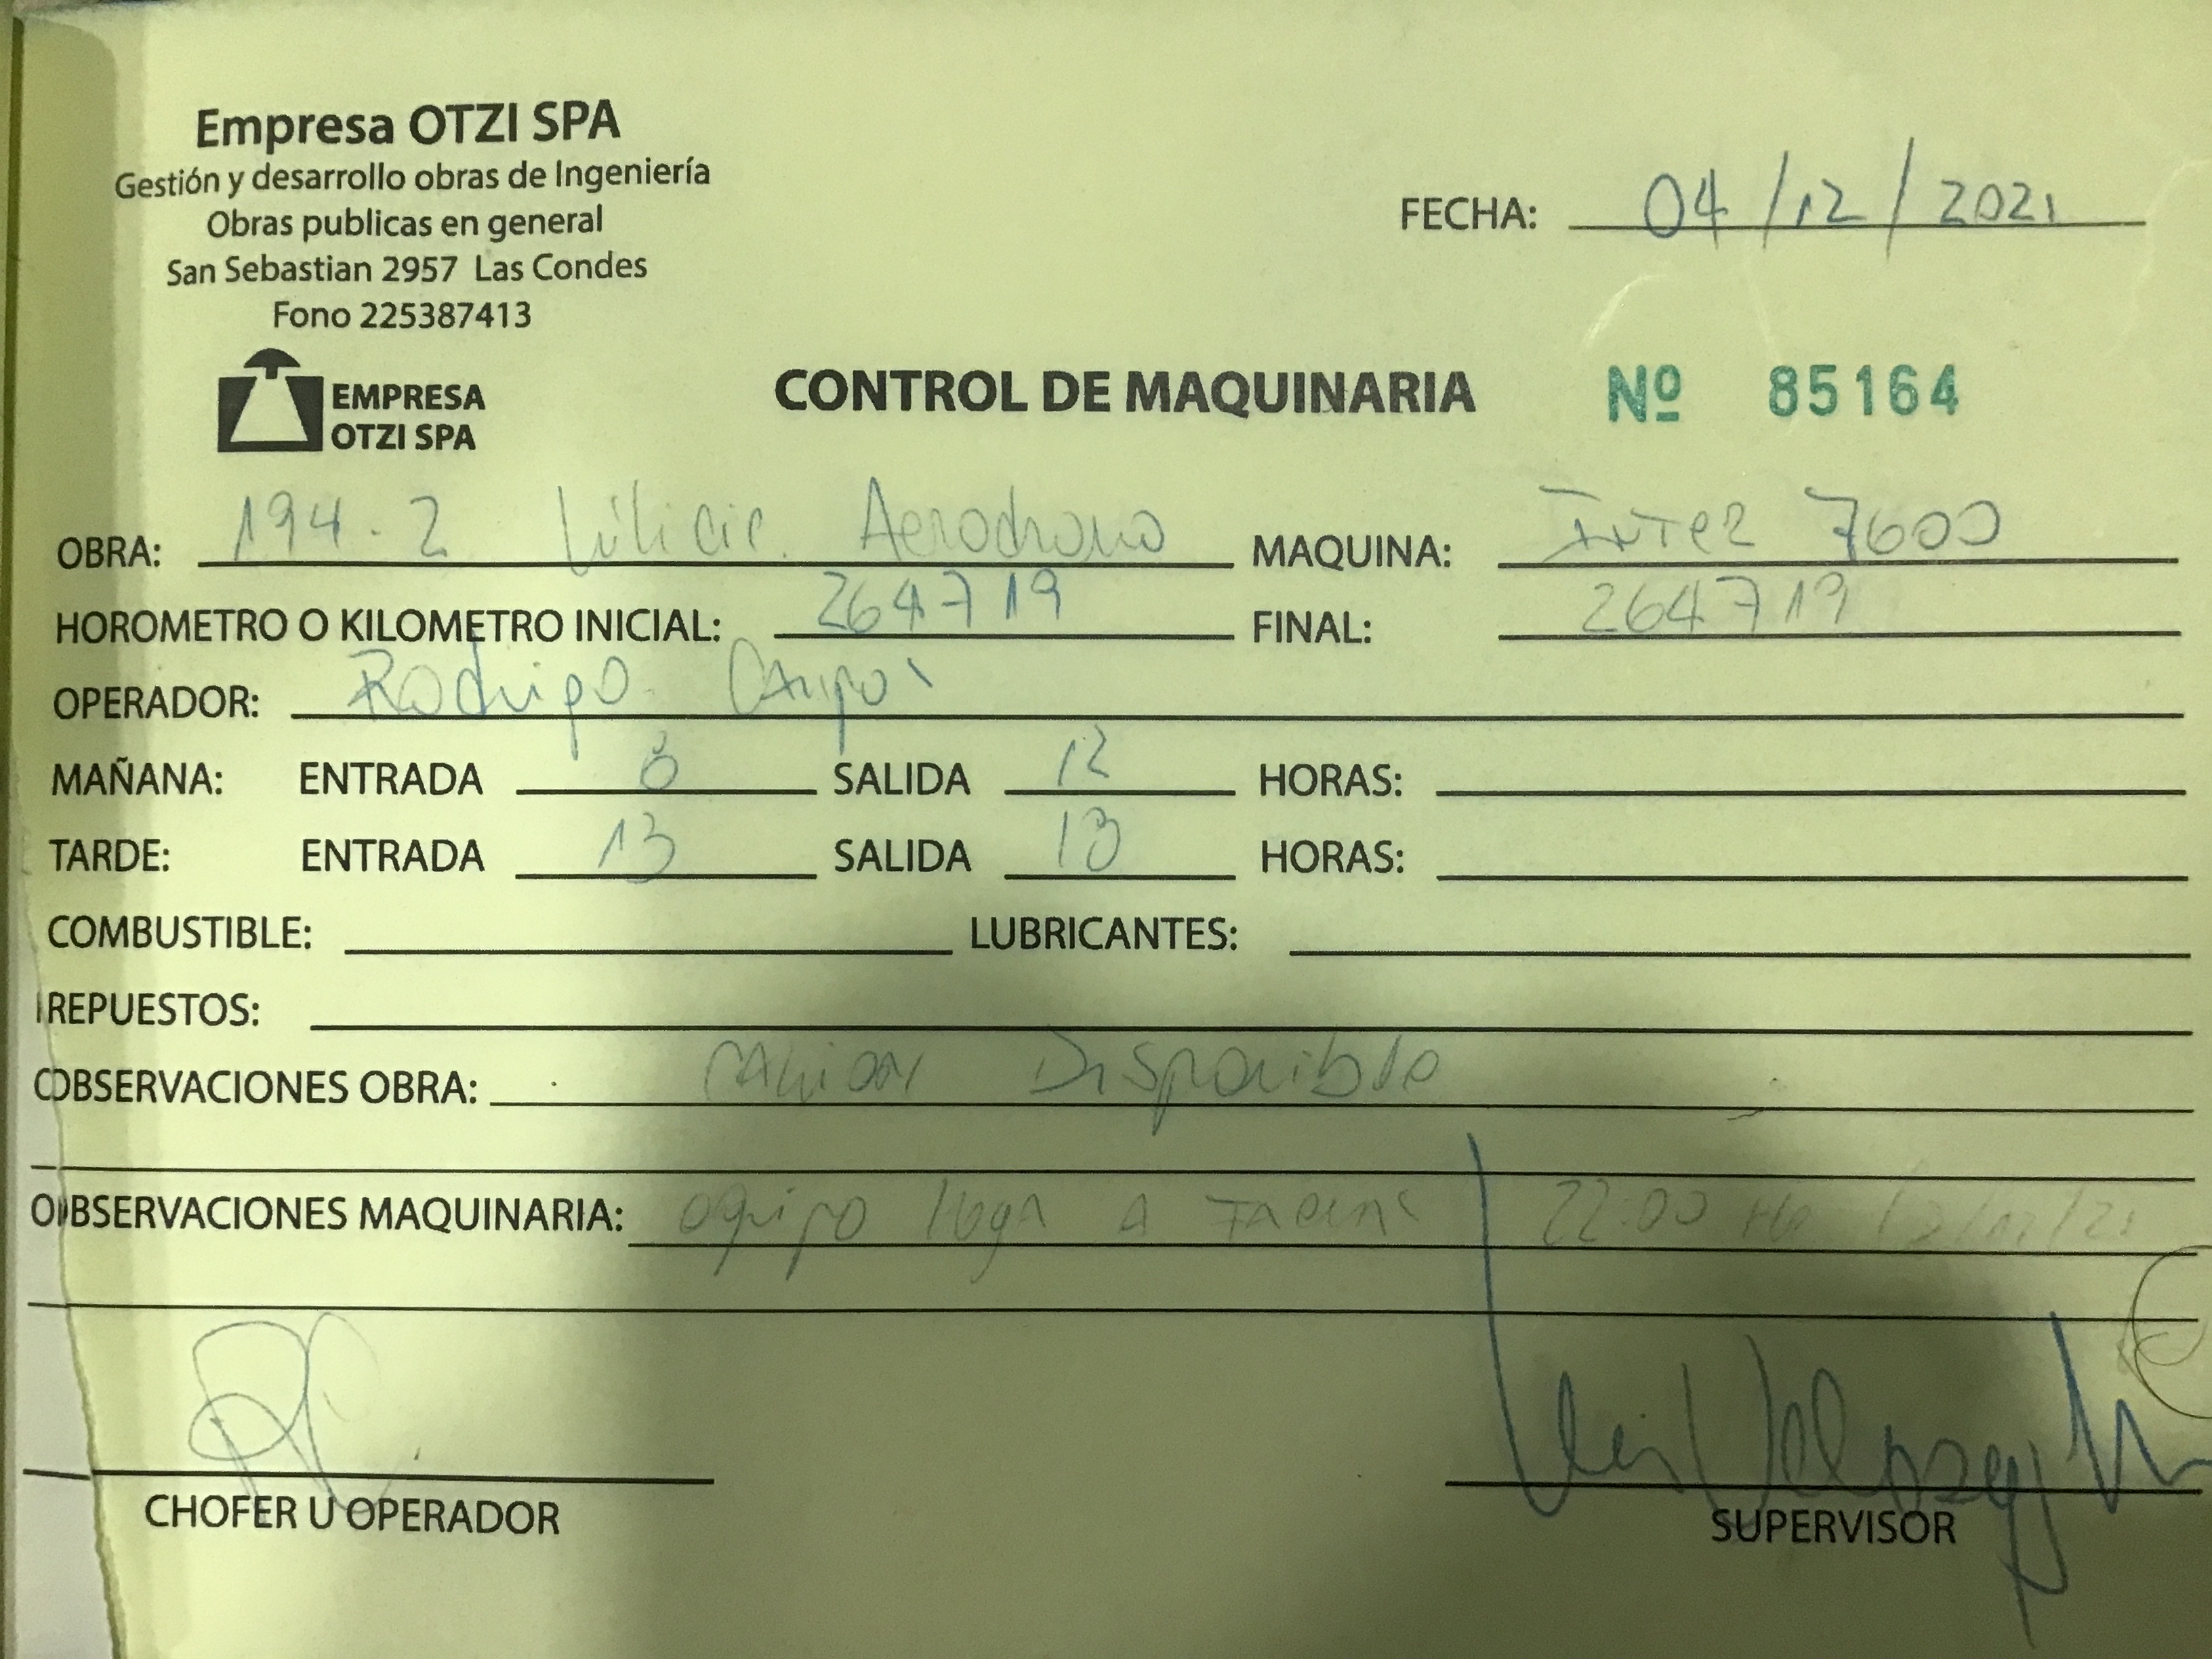 Empresa OTZI SPA
Gestión y desarrollo obras de Ingeniería
Obras publicas en general
San Sebastian 2957 Las Condes
Fono 225387413
FECHA: 04/12/2021
EMPRESA
OTZI SPA
CONTROL DE MAQUINARIA Nº 85164
OBRA: 194.2 Aerodromo MAQUINA: 7600
HOROMETRO O KILOMETRO INICIAL: 264719 FINAL: 264719
OPERADOR: Rodrigo
MAÑANA: ENTRADA 8 SALIDA 12 HORAS:
TARDE: ENTRADA 13 SALIDA 18 HORAS:
COMBUSTIBLE: LUBRICANTES:
REPUESTOS:
OBSERVACIONES OBRA: Camion Disponible
OBSERVACIONES MAQUINARIA: equipo llega a faena 22:00
CHOFER U OPERADOR
SUPERVISOR